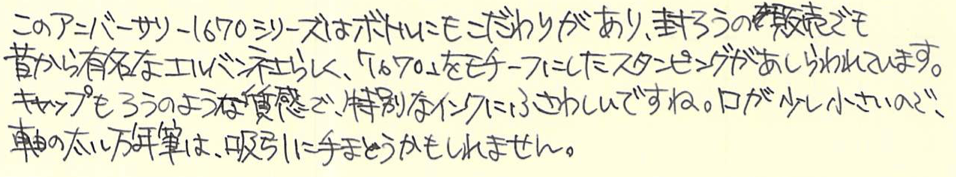 このアニバーサリー1670シリーズはボトルにもこだわりがあり、封ろうの販売でも
昔から有名なエルバン社らしく、「1670」をモチーフにしたスタンピングがあしらわれています。
キャップもろうのような質感で、特別なインクにふさわしいですね。口が少し小さいので、
軸の太い万年筆は、吸引に手まどうかもしれません。